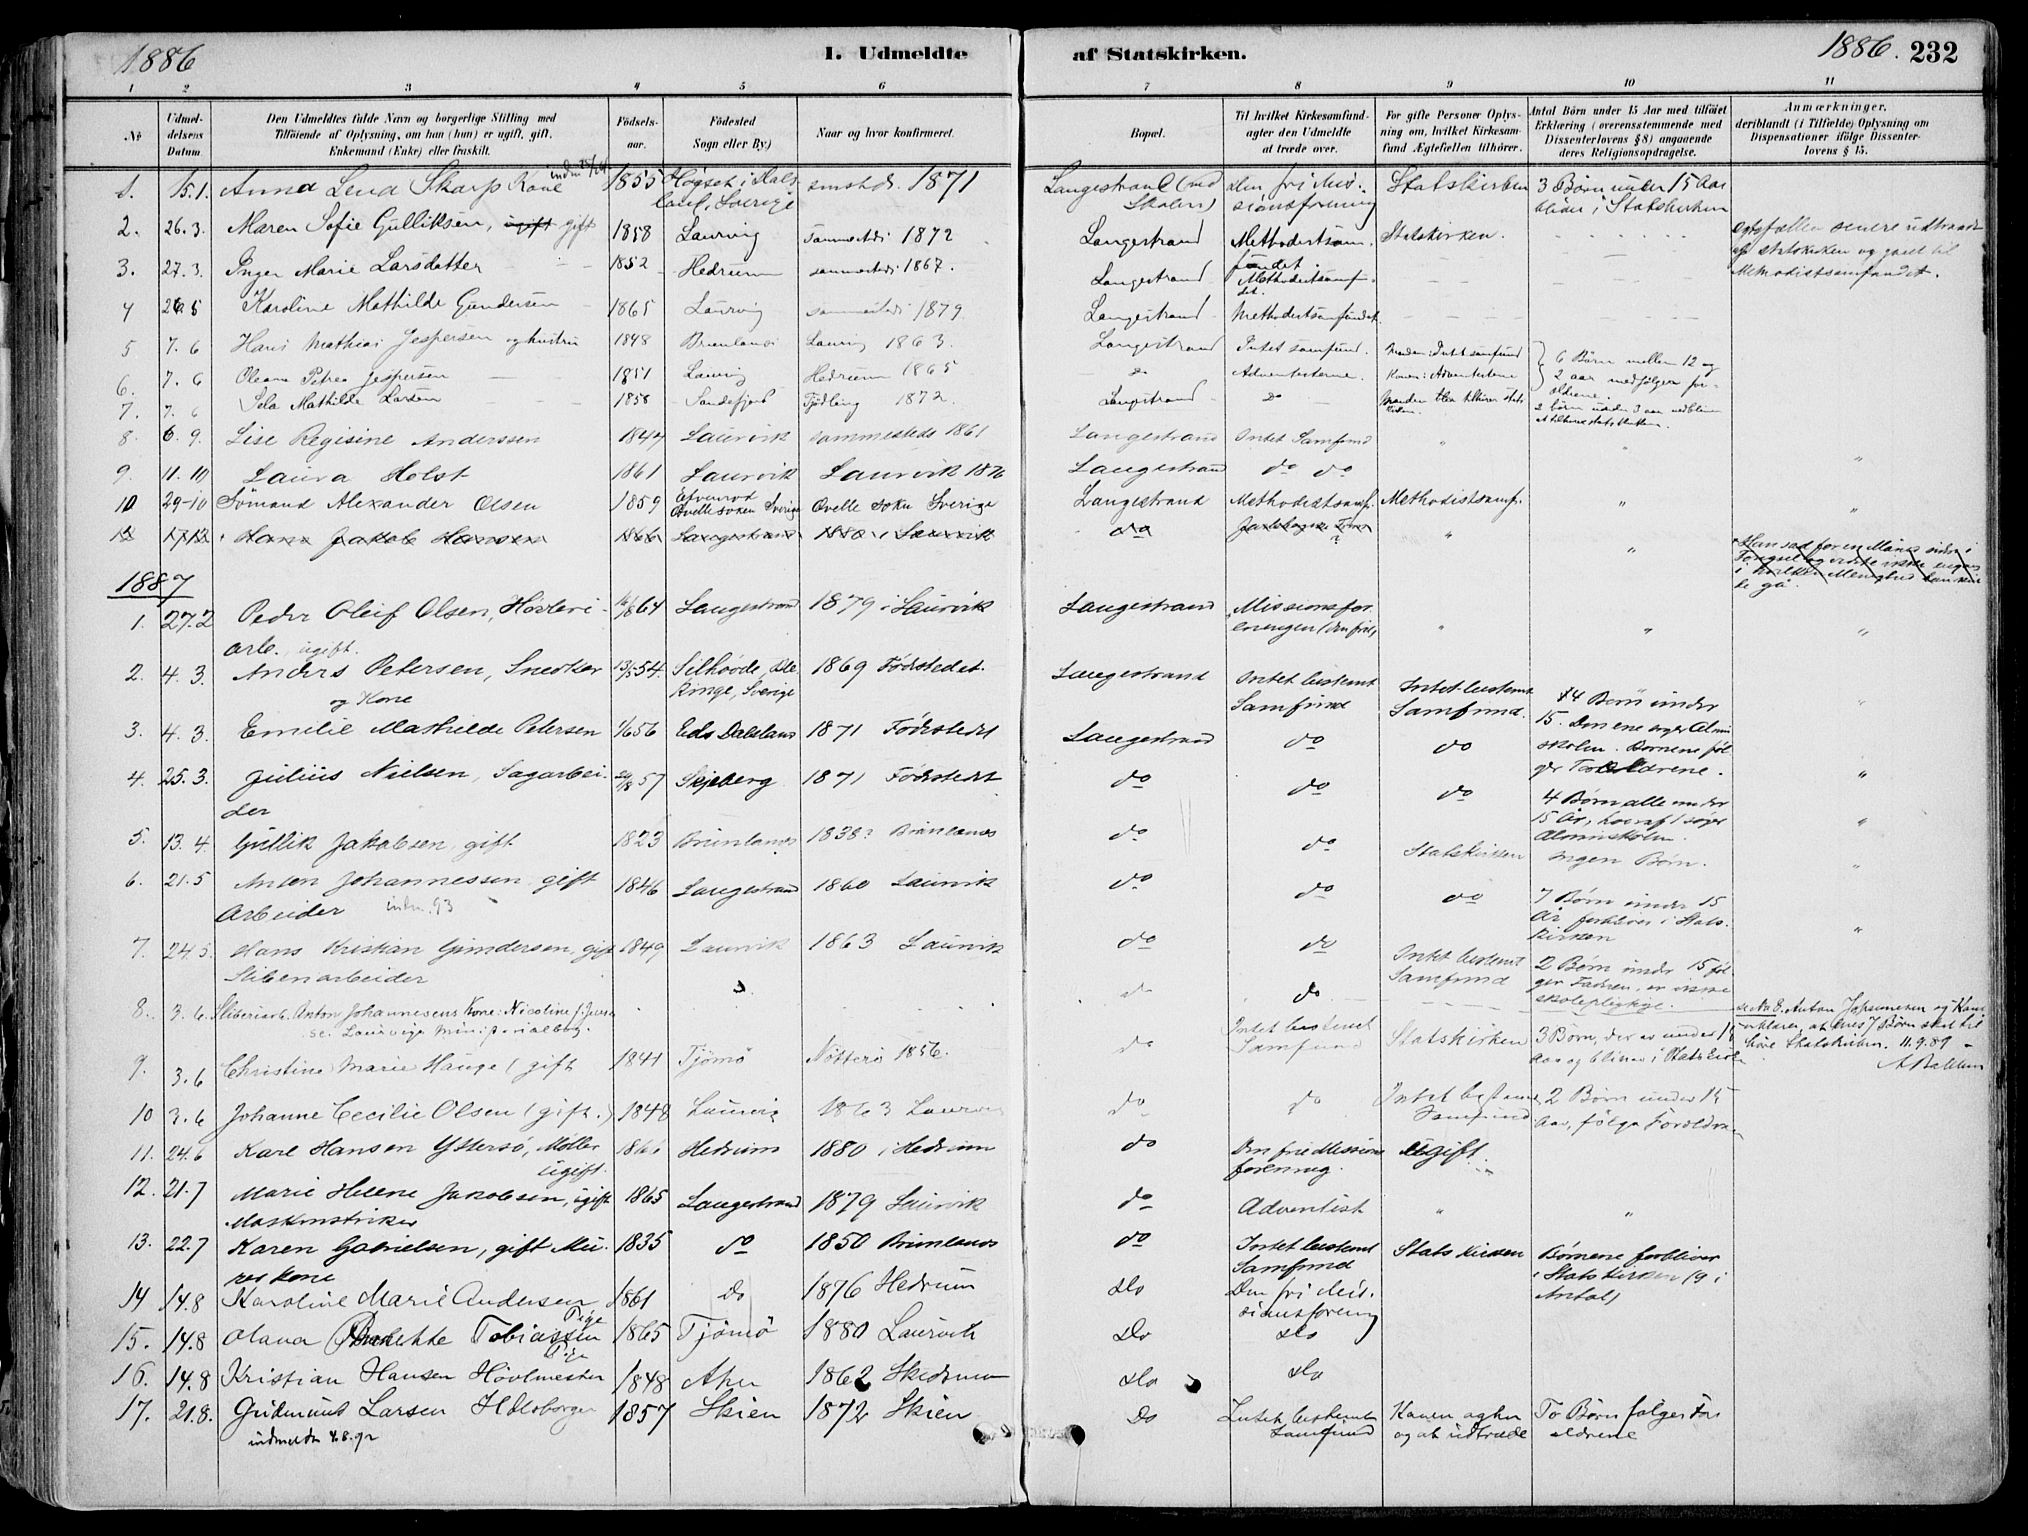 1886
I. Udmeldte af Statskirken.
1886. 232
1 2 3 4 5 6 7 8 9 10 11
No
Udmeldelsens Datum.
Den Udmeldtes fulde Navn og borgerlige Stilling med Tilføiende af Oplysning, om han (hun) er ugift, gift, Enkemand (Enke) eller fraskilt.
Fødselsaar.
Fødested Sogn eller By.)
Naar og hvor konfirmeret.
Bopæl.
Til hvilket Kirkesamfund agter den Udmeldte at træde over.
For gifte Personer Oplysning om, hvilket Kirkesamfund Ægtefællen tilhører.
Antal Børn under 15 Aar med tilføiet Erklæring (overensstemmende med Dissenterlovens § 8) angaaende deres Religionsopdragelse.
Anmærkninger, deriblandt (i Tilfælde) Oplysning om Dispensationer ifølge Dissenterlovens § 15.
1. 15.1. Anna Lena Skarp Kone 1855 Sverige 1871 Langestrand (ved Skolen) den fri Missionsforening Statskirken 3 Børn under 15 Aar bliver i Statskirken
2. 26.3. Maren Sofie Gulliksen, ugift gift 1858 Laurvig sammesteds 1872 Langestrand Methodistsamfundet. Statskirken. Egtefællen senere udtraadt af statskirken og gaaet til Methodistsamfundet.
3. 27.3. Inger Marie Larsdatter 1852 Hedrum sammesteds 1867. Langestrand Methodistsamfundet.
4 26.5 Karoline Mathilde Gundersen 1865 Laurvig sammesteds 1879 Langestrand Methodistsamfundet.
5 7.6 Hans Mathias Jespersen og hustru 1848 Brunlanæs Laurvig 1863. Langestrand Intet samfund. Manden: Intet samfund 6 Børn mellem 12 og 2 aar medfølger forældrene.
6. 7.6 Oleana Petrea Jespersen 1851 Laurvig Hedrum 1865 do Adventisterne. Konen: Adventisterne
7. 7.6 Mathilde Larsen 1858 Sandefjord Tjødling 1872. Langestrand do 2 børn under 3 aar
8. 6.9. Lise Regisine Anderssen 1844 Laurvik sammesteds 1861 Langestrand Intet Samfund "
9. 11.10 Laura Holst 1861 Laurvik Laurvik 1876 Langestrand do do " "
10 29-10 Sömand Alexander Olsen 1859 Qvelle soken Sverige Qvelle Sokn Sverige Langestrand Methodistsamf. Methodistsamf. " "
17.12 Hans Jakob Hansen 1866 Langestrand 1880 i Laurvik do " "
1887
1. 27.2 Peder Oluf Olsen, Høvleriarb., ugift. 64 Langestrand 1879 i Laurvik Langestrand Missionsforeningen (den frie) " " "
2. 4.3. Anders Petersen, Snedker og Kone 54. Sverige 1869 Fødestedet. Langestrand Intet bestemt Samfund Intet bestemt Samfund. 4 Børn under 15. Den ene søger Almueskolen. Børnene følger Forældrene. "
3. 4.3. Emilie Mathilde Petersen 56 Eds Dalsland 1871 Fødestedet Langestrand do do
4. 25.3. Julius Nielsen, Sagarbeider 57 Skjeberg 1871 Fødestedet do do do 4 Børn alle under 15 År, hvoraf 1 søger Almueskolen. "
5. 13.4. Gullik Jakobsen, gift 1823 Brunlanæs 1838? Brunlanæs do do Statskirken Ingen Børn. "
6. 21.5 Anton Johannessen gift Arbeider indm. 93 1846 Langestrand 1860 Laurvik do do do 7 Børn under 15 År forbliver i Statskirken "
7. 24.5. Hans Kristian Gundersen, gift Slibenarbeider 1849 Laurvik 1863 Laurvik do do Intet bestemt Samfund 2 Børn under 15 følger Faderen, er ikke skolepligtige. "
8. 3.6. Sliberiarb. Anton Johannesens Kone: Nicoline do do
9. 3.6 Christine Marie Hauge (gift 1841 Tjømø Nøtterø 1856. do Intet bestemt Samfund Statskirken 3 Børn, der er under 15 Aar og bliver i Statskirken 11.9.89
10 3.6 Johanne Cecilie Olsen (gift.) 1848 Laurvig 1863 Laurvig do do Intet bestemt Samfund 2 Børn under 15 Aar, følge Forældrene
11. 24.6 Karl Hansen Yttersø, Møller ugift. Hedrum 1880 i Hedrum do Den frie Missionsforening. Ugift.
12. 21.7 Marie Helene Jakobsen, ugift Maskinstriker 1865 Langestrand 1879 Laurvik do Adventist " "
13. 22.7 Karen Gabrielsen, gift Murerkone 1835 do 1850 Brunlanæs do Intet bestemt Samfund Statskirken Børnene forbliver i Statskirken (9 i Antal)
14 14.8 Karoline Marie Andersen Pige 1861 do 1876 Hedrum do Den fri Missionsforening
15. 14.8 Olava Tobiassen Pige 1865 Tjømø 1880 Laurvik do do
16. 14.8 Kristian Hansen Høvlmester 1848 Aker 1862 do do
17. 21.8. Gudmund Larsen 1857 Skien 1872 Skien Do Intet bestemt Samfund Konen agter og at udtræde To Børn følger Forældrene
indmeldt 4.8.92